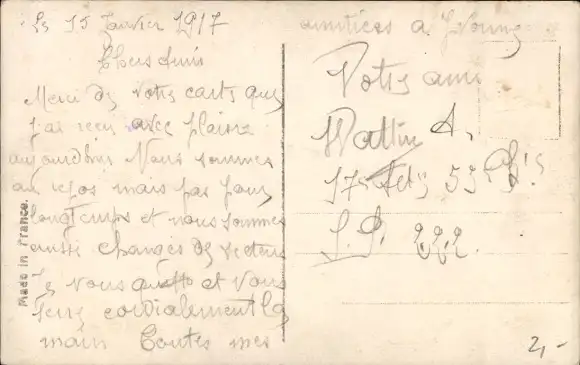 Le 15 Janvier 1917
Chers Amis
Merci de votre carte que
j'ai reçu avec plaisir
aujourdhui Nous sommes
au repos mais pas pour
longtemps et nous sommes
aussi changes de secteur
Je vous quitte et vous
serre cordialement la
main Toutes mes
amitiées a Yvonne
Votre ami
Wattin A,
17e 53e
S. P. 222.
Made in France.
2,-